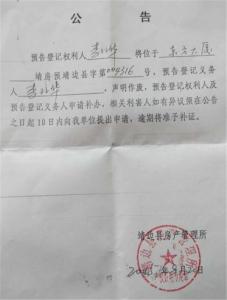 公 告
预告登记权利人 李 华 将位于 东方大厦
靖房预靖边县字第004316 号，预告登记义务
人 李 华 ，声明作废，预告登记权利人及
预告登记义务人申请补办，相关利害人如有异议须在公告
之日起10日内向我单位提出申请，逾期将准予补证。
靖边县房产管理所